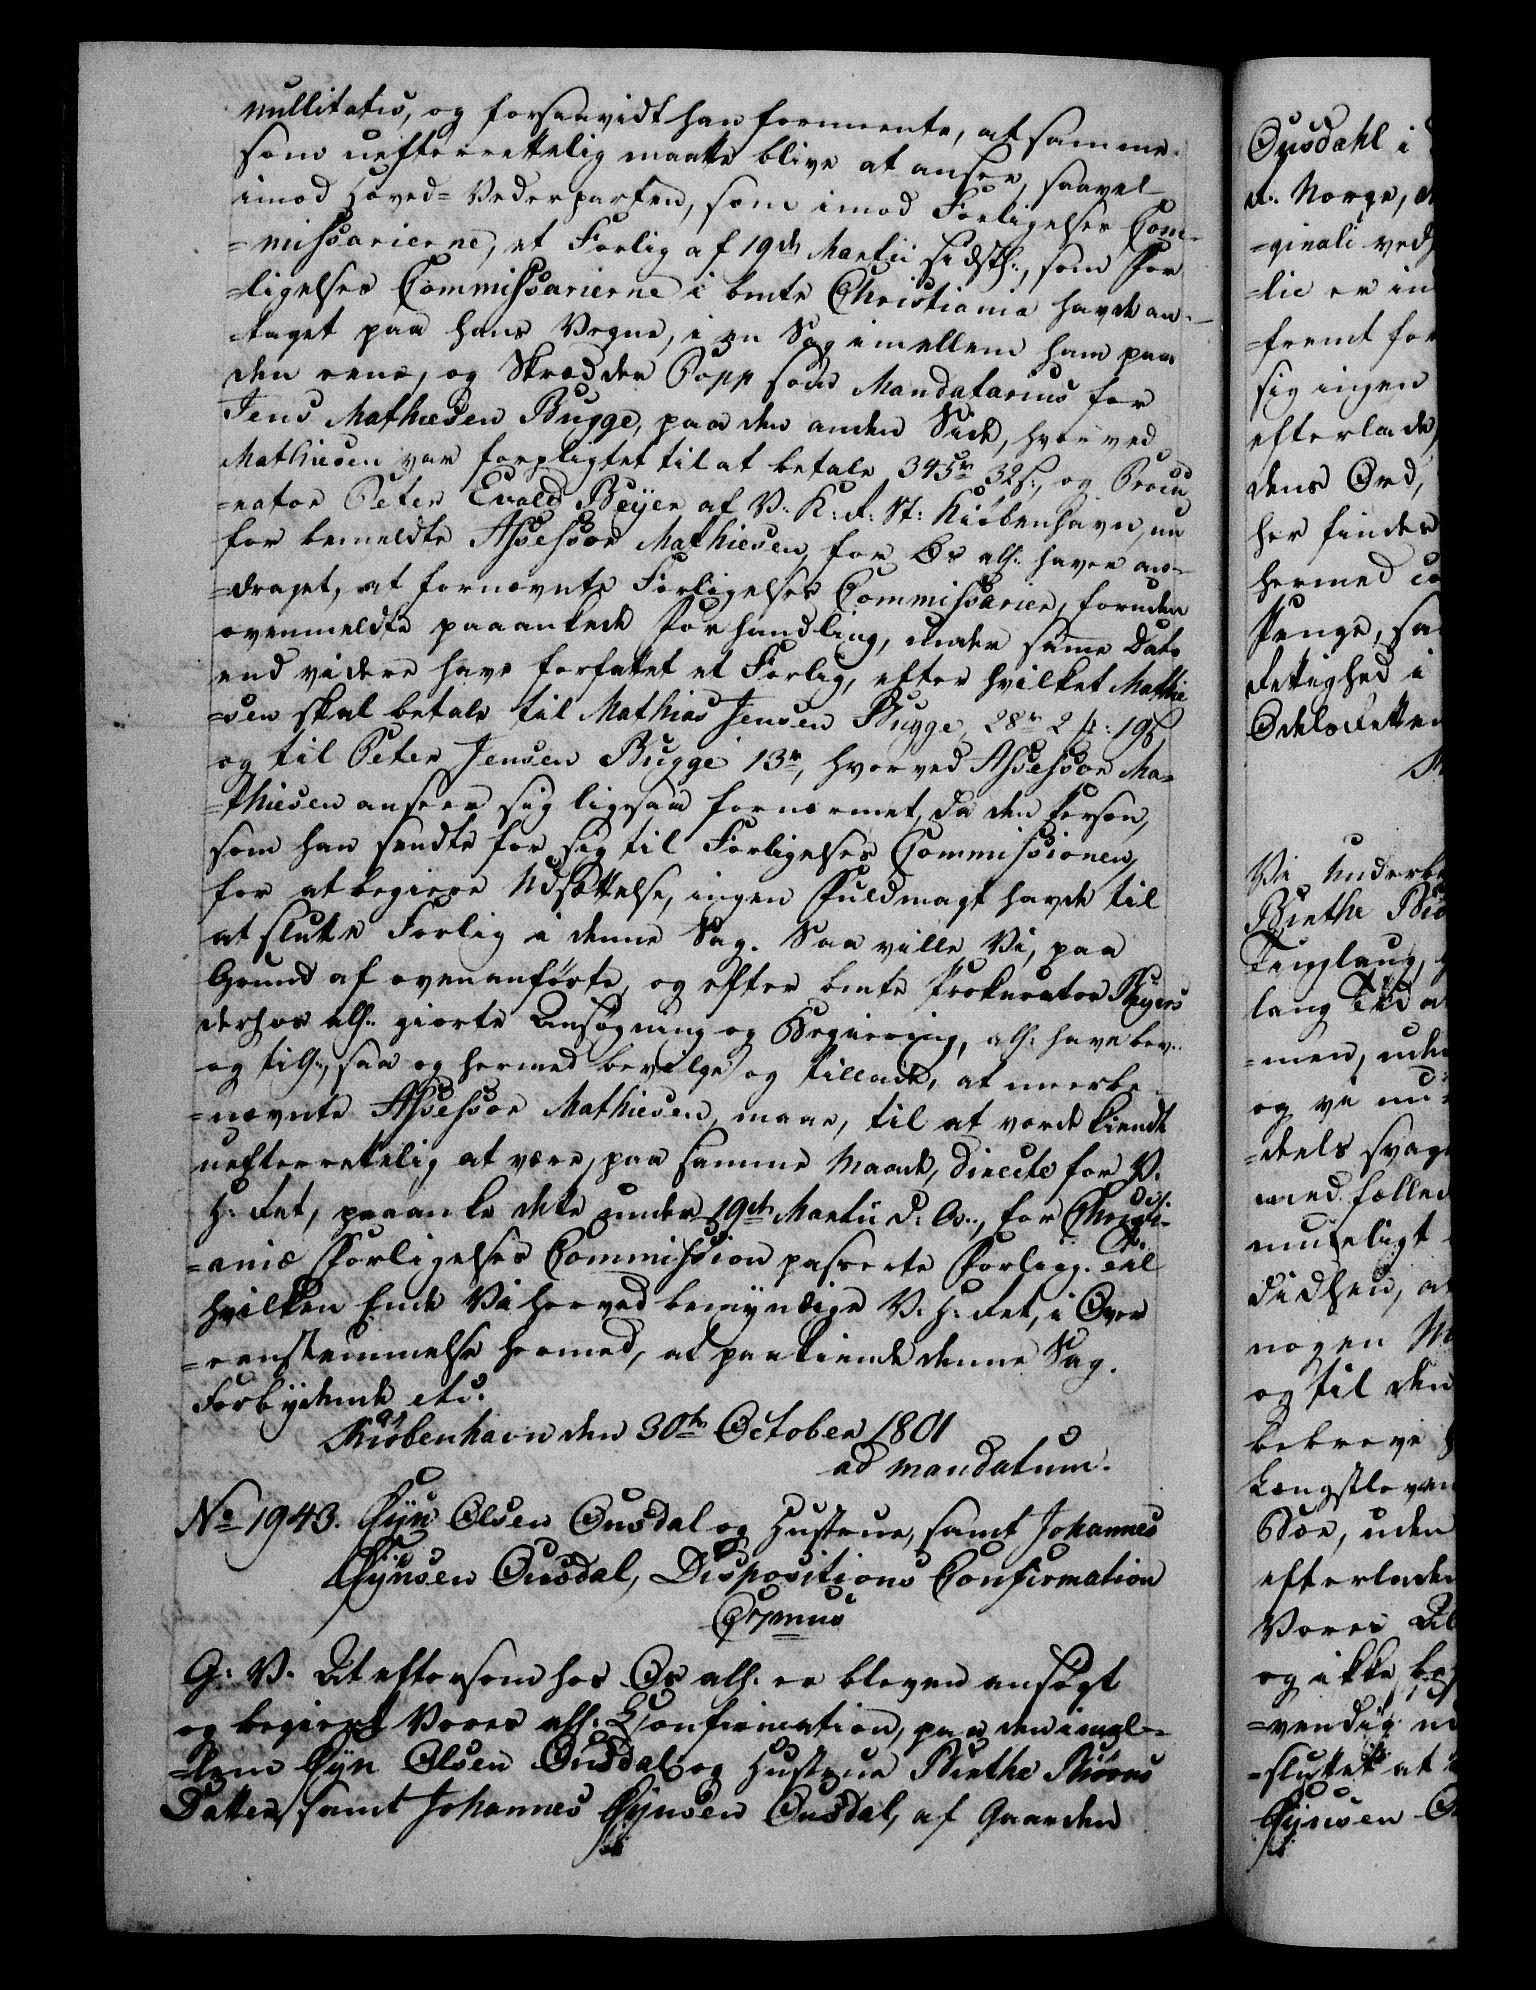 nullitatis, og forsaavidt han formeente, at samme
som uefterrettelig maatte blive at ansee, saavel
imod Hoved-Vederparten, som imod Forligelses Com-
=missarierne, et Forlig af 19de Martii sidstl:, som For
=ligelses Commissarierne i bmte Christiania havde an-
=taget paa hans Vegne, i en Sag imellem ham paa
den eene, og Skræder Popp som Mandatarius for
Jens Mathiesen Bugge, paa den anden Side, hvorved
Mathiesen var forpligtet til at betale 345rd 32s:, og Procu
=rator Peter Evald Beyer af V: K: R: St: Kiöbenhavn, nu
for bemeldte Assessor Mathiesen, for Os alh: haver an-
=draget, at fornævnte Forligelses Commissarier, foruden
ovenmeldte paaankede Forhandling, under samme Dato
end videre have forfattet et Forlig, efter hvilket Mathie
=sen skal betale til Mathias Jensen Bugge 28rd 2 ß: 19s
og til Peter Jensen Bugge 13rd, hvorved Assessor Ma-
=thiesen anseer sig ligesaa fornærmet, da den Person,
som han sendte for sig til Forligelses Commissionen,
for at begiere Udsættelse, ingen Fuldmagt havde til
at slutte Forlig i denne Sag. Saa ville Vi, paa
Grund af ovenanførte, og efter bmte Prokurator Beyers
derhos alh: giorte Ansögning og Begiering, alh: have bev:
og tilst:, saa og hermed bevilge og tillade, at meerbe-
=nævnte Assessor Mathiesen, maae, til at vorde kiendt
uefterrettelig at være, paa samme Maade, directe for V.
H: Ret, paaanke dette under 19de Martii d: A:, for Christi-
=aniæ Forligelses Commission passerte Forliig. Til
hvilken Ende Vi herved bemyndige V. H: Ret, i Over
=eenstemmelse hermed, at paakiende denne Sag.
Forbydende etc.
Kiöbenhavn den 30te October 1801
ad mandatum.
No 1943. Øyn Olsen Ousdal og Hustrue, samt Johannes
Øynsen Ousdal, Dispositions Confirmation
Gratis
G: V. At eftersom hos Os alh: er bleven ansøgt
og begiert Vores alh: Confirmation, paa den imel-
=lem Øyn Olsen Ousdal og Hustrue Birthe Biørns
Datter, samt Johannes Øynsen Ousdal, af Gaarden
Ousdahl i
R. Norge,
=ginali ved
=lie er in
=fremt for
sig ingen
efterlade
dens Ord,
her findes
hermed co
Penge, sa
Rettighed i
Odels Retten
Vi Underte
Birthe Biø
Tinglaug,
lang Tid a
=men, uden
og vi nu
=deels svag
med fælled
mueligt
didhen, at
nogen M
og til den
bekreve
Længstleven
Boe, uden
efterlade
Vores
og ikke
=vendig
=sluttet at
Øynsen O